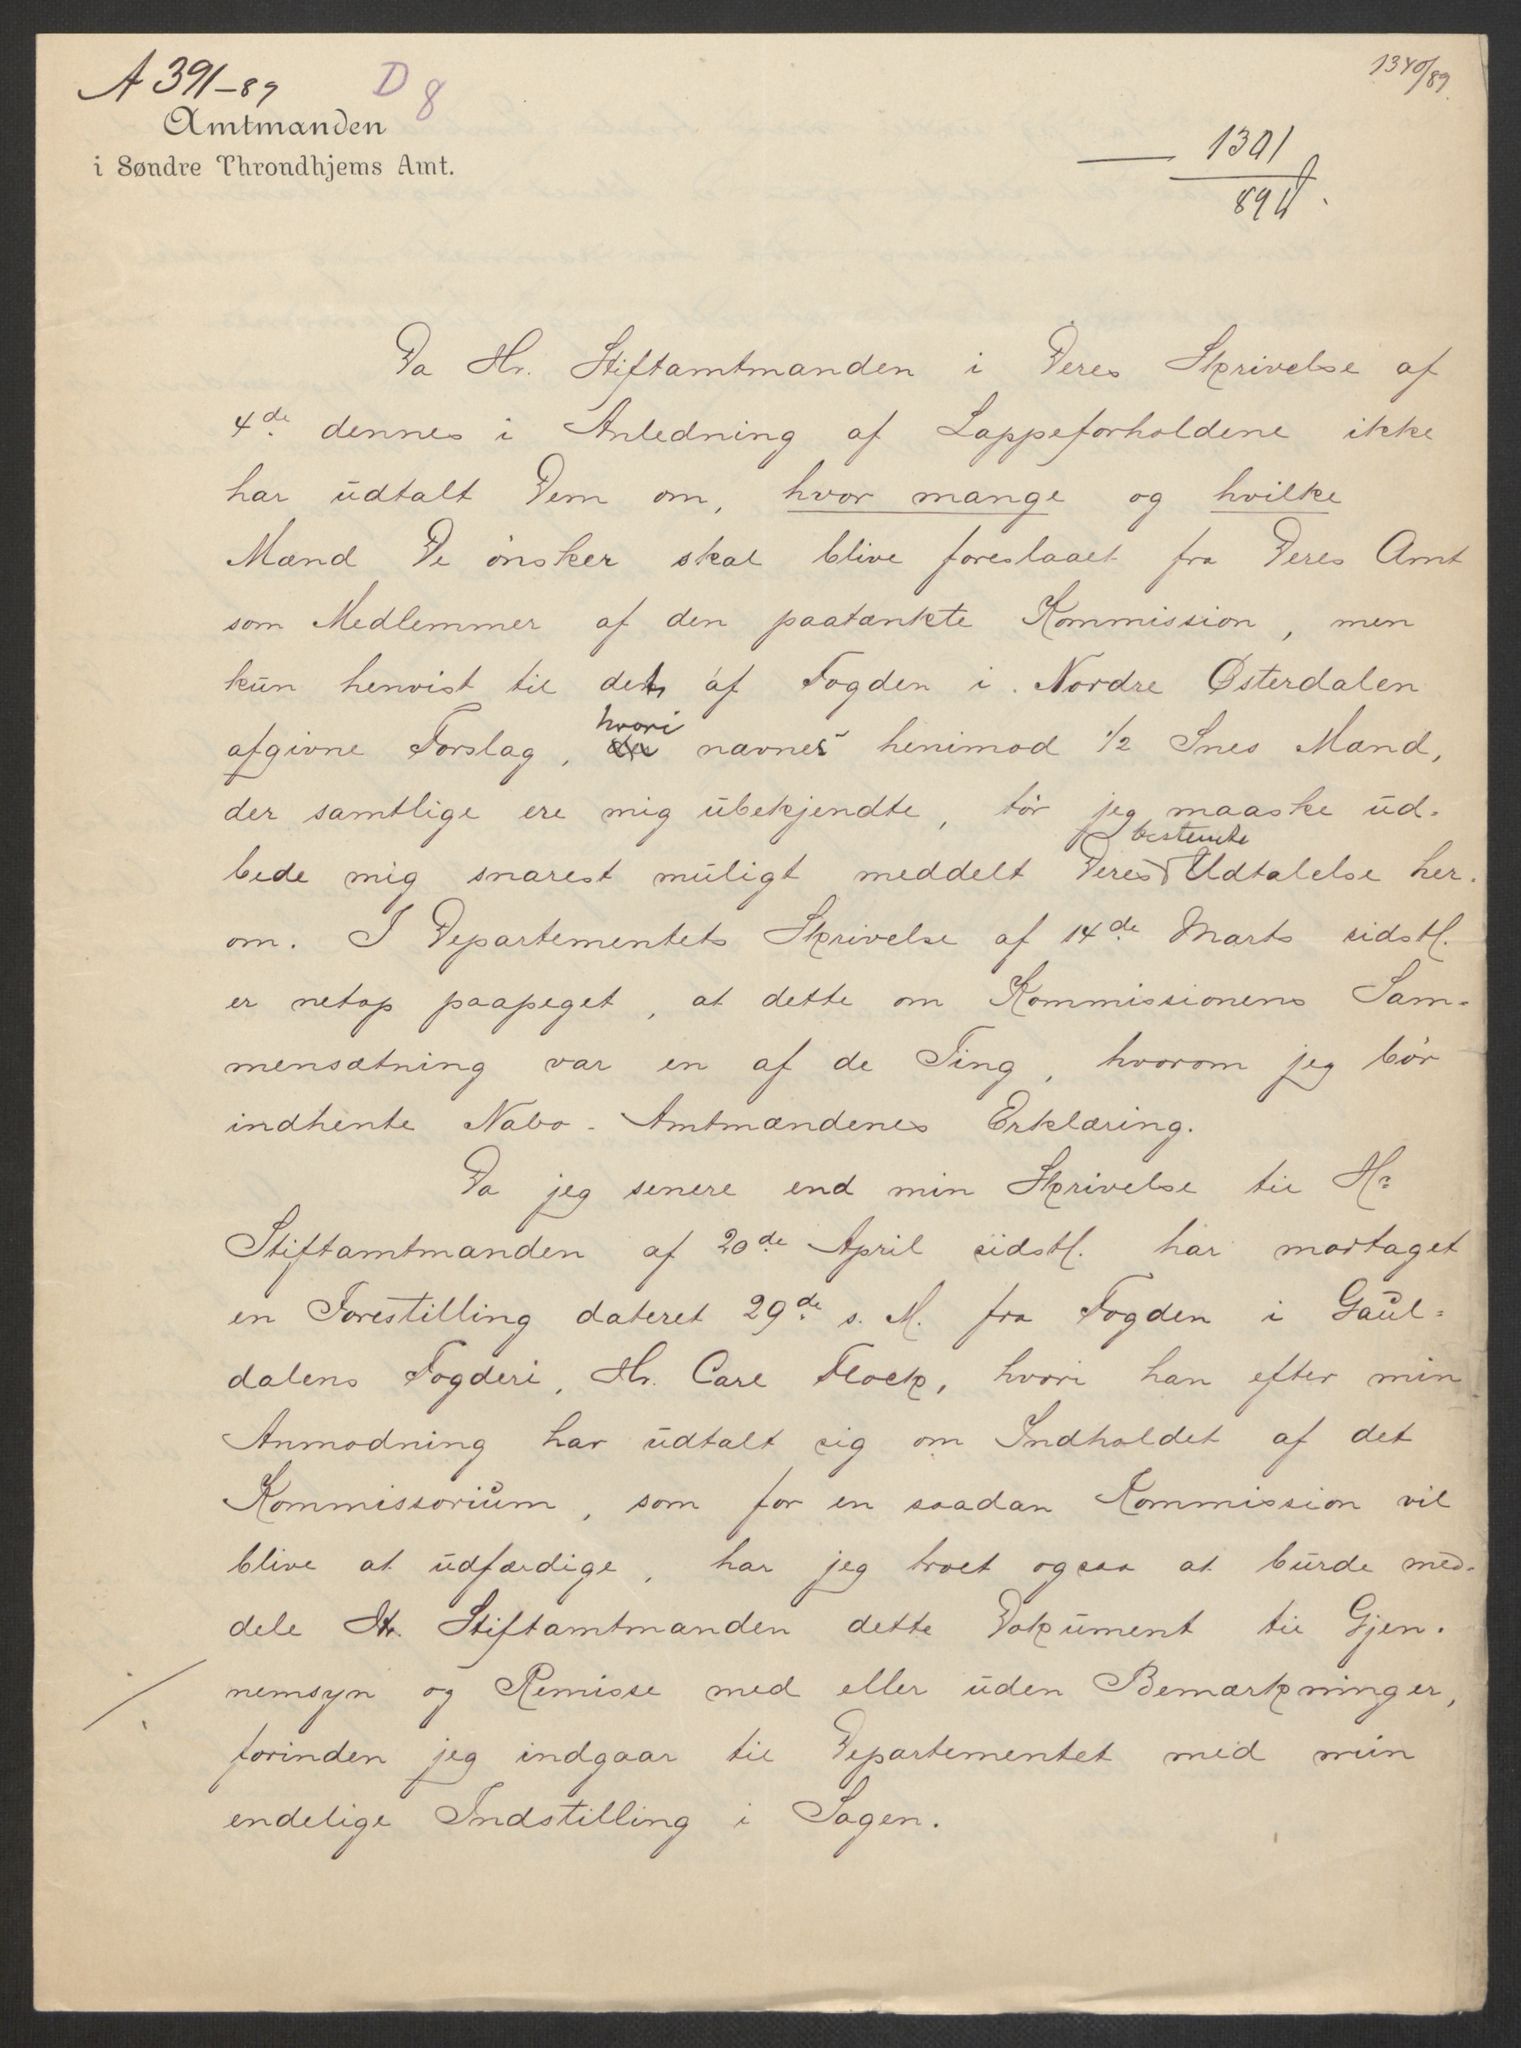 A 391-89 D 8
1340/89
Amtmanden
i Søndre Throndhjems Amt.
1301
89
Da Hr. Stiftamtmanden i Deres Skrivelse af
4de dennes i Anledning af Lappeforholdene ikke
har udtalt Dem om, hvor mange og hvilke
Mænd De ønsker skal blive foreslaaet fra Deres Amt
som Medlemmer af den paatænkte Kommission, men
kun henvist til det af Fogden i Nordre Østerdalen
afgivne Forslag, hvori nævnes henimod 1/2 Snes Mænd,
der samtlige ere mig ubekjendte, tør jeg maaske ud-
bede mig snarest muligt meddelt Deres bestemte Udtalelse her-
om. I Departementets Skrivelse af 14de Marts sidstl.
er netop paapeget, at dette om Kommissionens Sam-
mensætning var en af de Ting, hvorom jeg bør
indhente Nabo-Amtmændenes Erklæring.
Da jeg senere end min Skrivelse til Hr
Stiftamtmanden af 20de April sidstl. har modtaget
en Forestilling dateret 29de s. M. fra Fogden i Gaul-
dalens Fogderi, Hr. Carl Flock, hvori han efter min
Anmodning har udtalt sig om Indholdet af det
Kommissorium, som for en saadan Kommission vil
blive at udfærdige, har jeg troet ogsaa at burde med-
dele Hr. Stiftamtmanden dette Dokument til Gjen-
nemsyn og Remisse med eller uden Bemærkninger,
forinden jeg indgaar til Departementet med min
endelige Indstilling i Sagen.